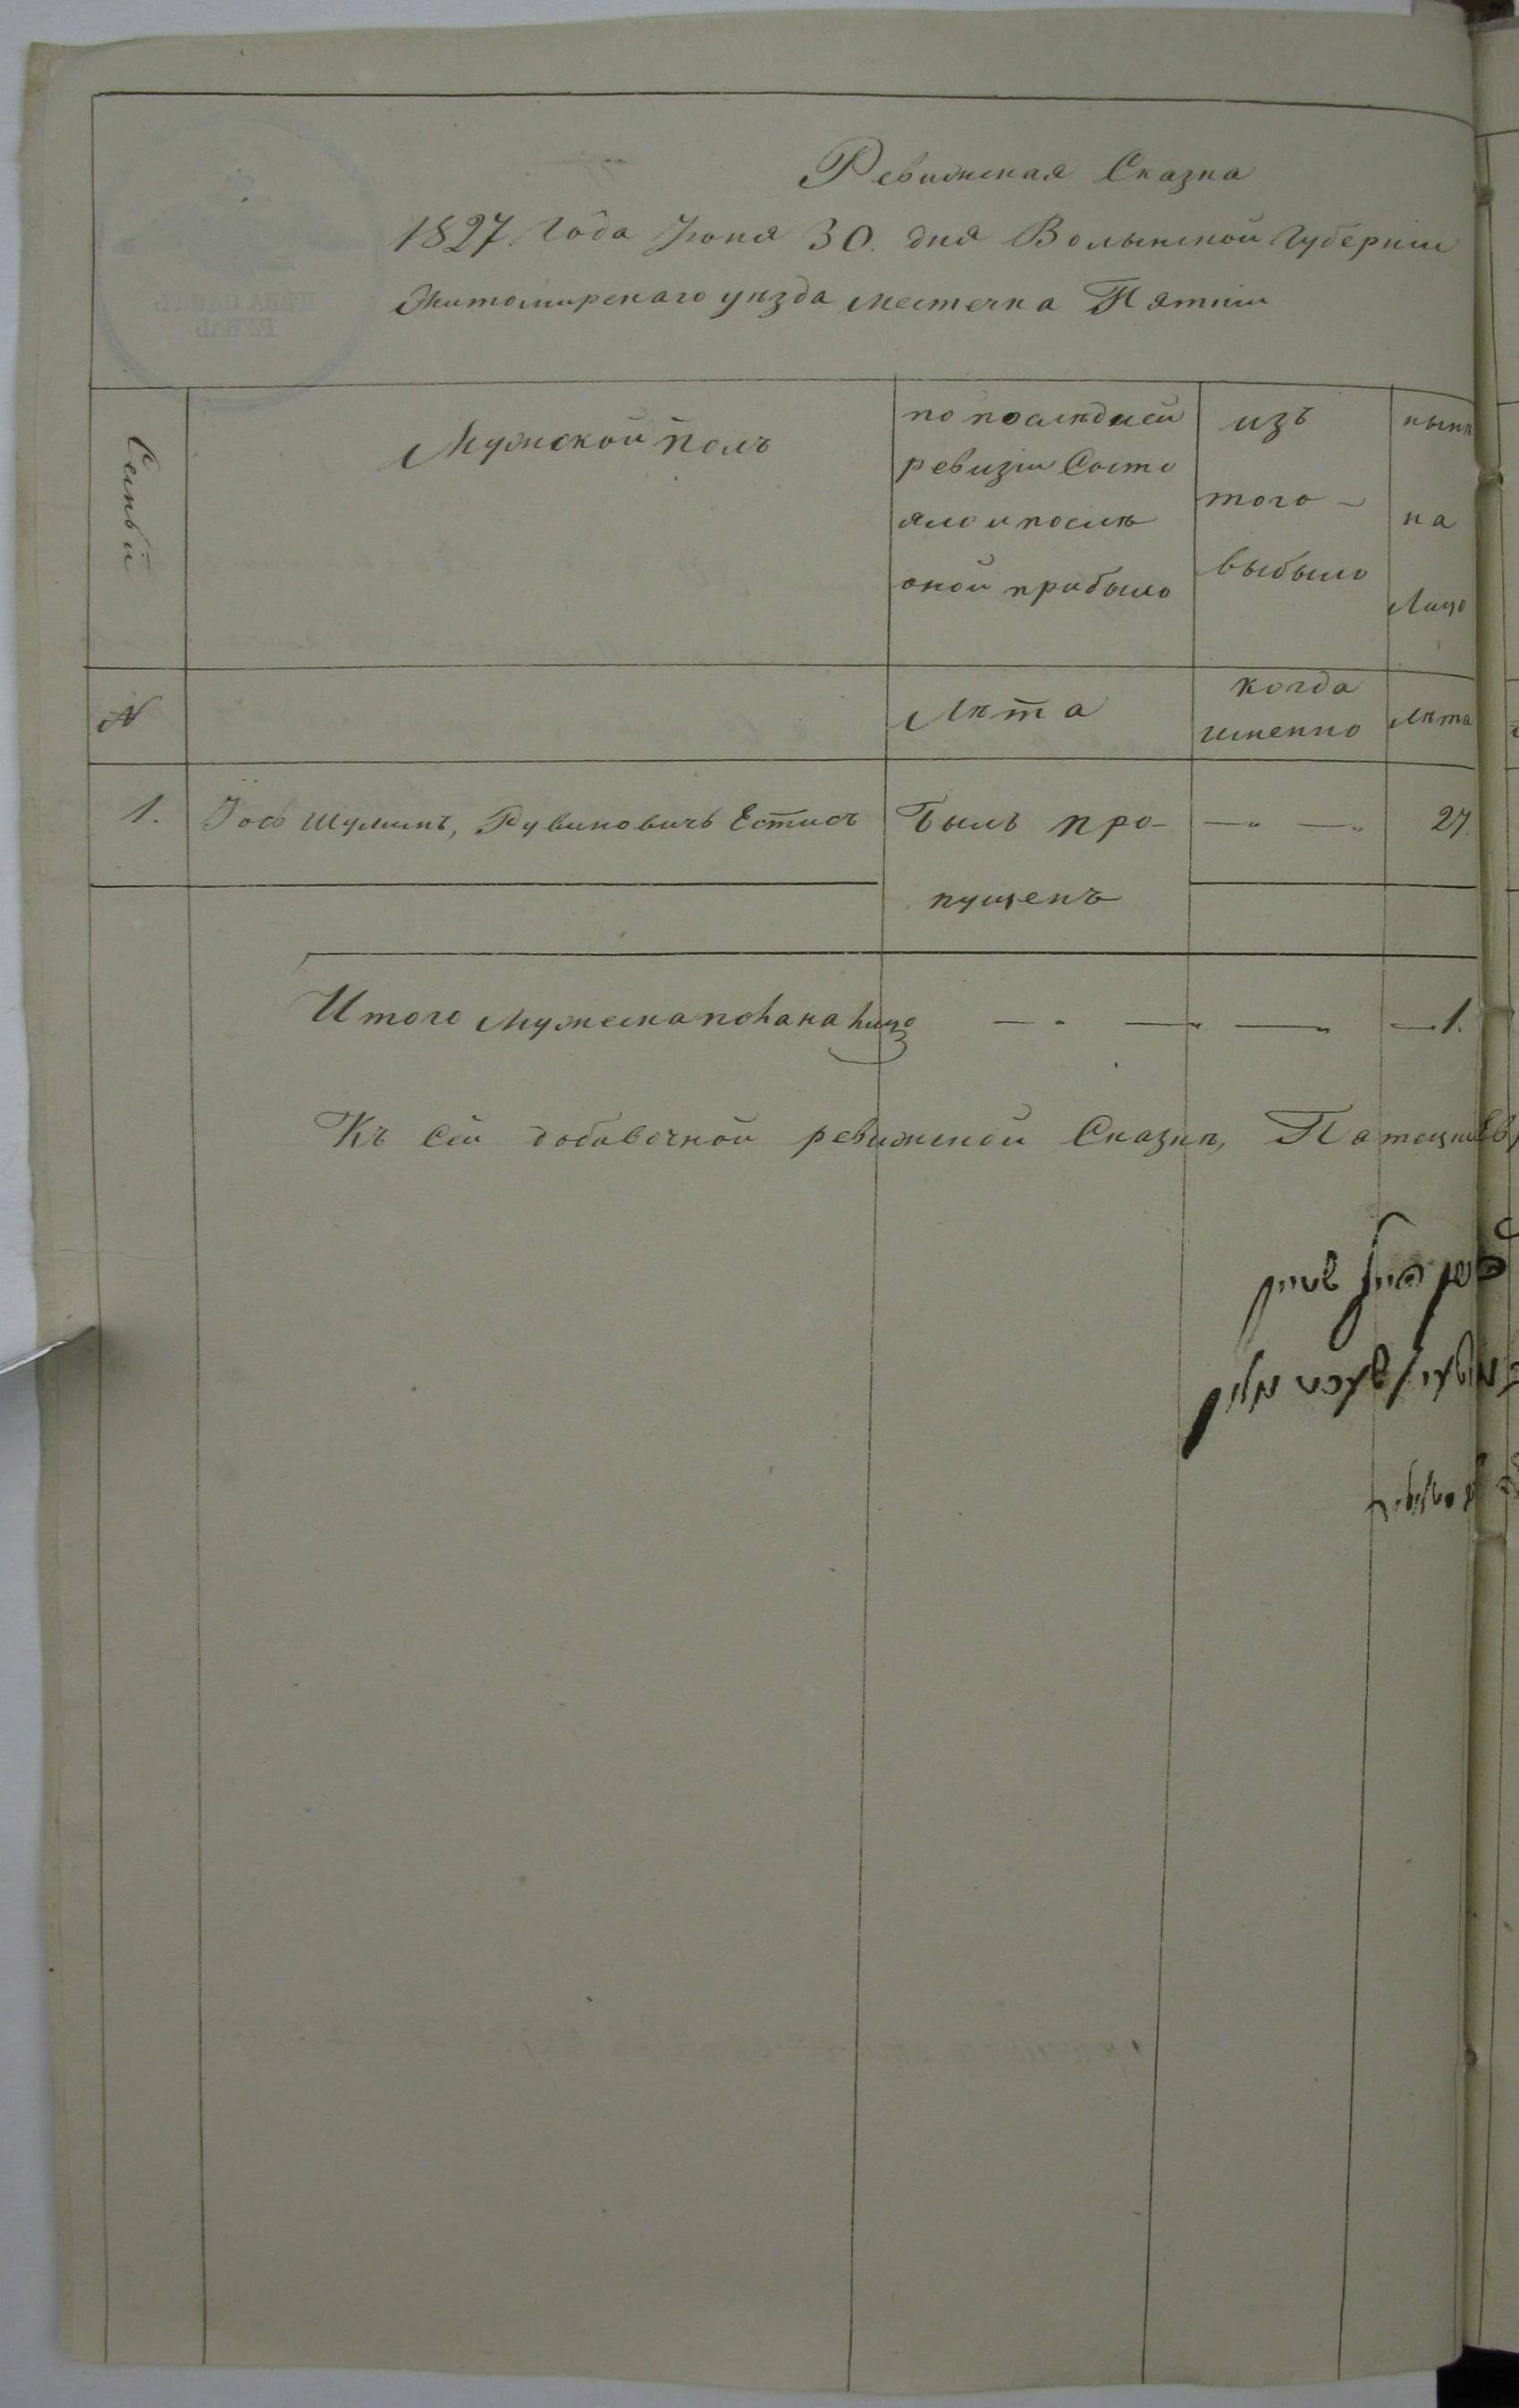 Ревижская Сказка
1827 Года Июня 30. дня Волынской Губерніи
Житомирскаго уѣзда местечка Пятки
Семьи
Мужской полъ
по послѣдней
ревизіи Состо
яло и послѣ
оной прибыло
изъ
того
выбыло
нынѣ
на
Лицо
N
Лѣта
когда
именно
Лѣта
1. Іось Шулимъ, Рувиновичъ Естисъ
Былъ про-
пущенъ
27.
Итого Мужеска пола на лицо 1.
Къ сей добавочной ревижской Сказкѣ,